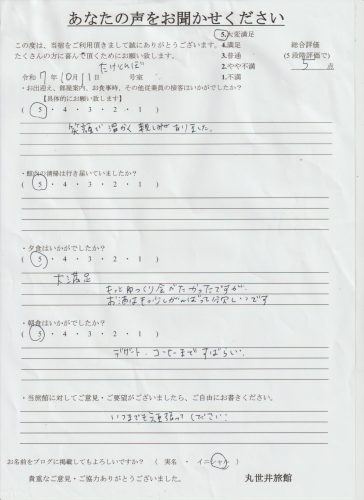 あなたの声をお聞かせください
この度は、当宿をご利用頂きまして誠にありがとうございます。
たくさんの方に喜んで頂くためにお願い致します。
5.大変満足
4.満足
3.普通
2.やや不満
1.不満
総合評価
(5段階評価で)
5 点
たけとんぼ
令和 7 年 10 月 1 日 号室
・お出迎え、部屋案内、お食事時、その他従業員の接客はいかがでしたか?
【具体的にお願い致します】
( 5 ・ 4 ・ 3 ・ 2 ・ 1 )
笑顔で温かく親しみがありました。
・館内の清掃は行き届いていましたか?
( 5 ・ 4 ・ 3 ・ 2 ・ 1 )
・夕食はいかがでしたか?
( 5 ・ 4 ・ 3 ・ 2 ・ 1 )
大満足
もっとゆっくり食べたかったですが
お酒はもう少しがんばって欲しいです
・朝食はいかがでしたか?
( 5 ・ 4 ・ 3 ・ 2 ・ 1 )
デザート・コーヒーまですばらしい
・当旅館に対してご意見・ご要望がございましたら、ご自由にお書きください。
いつまでも頑張ってください!
お名前をブログに掲載してもよろしいですか? ( 実名 ・ イニシャル )
貴重なご意見・ご協力ありがとうございました。
丸世井旅館